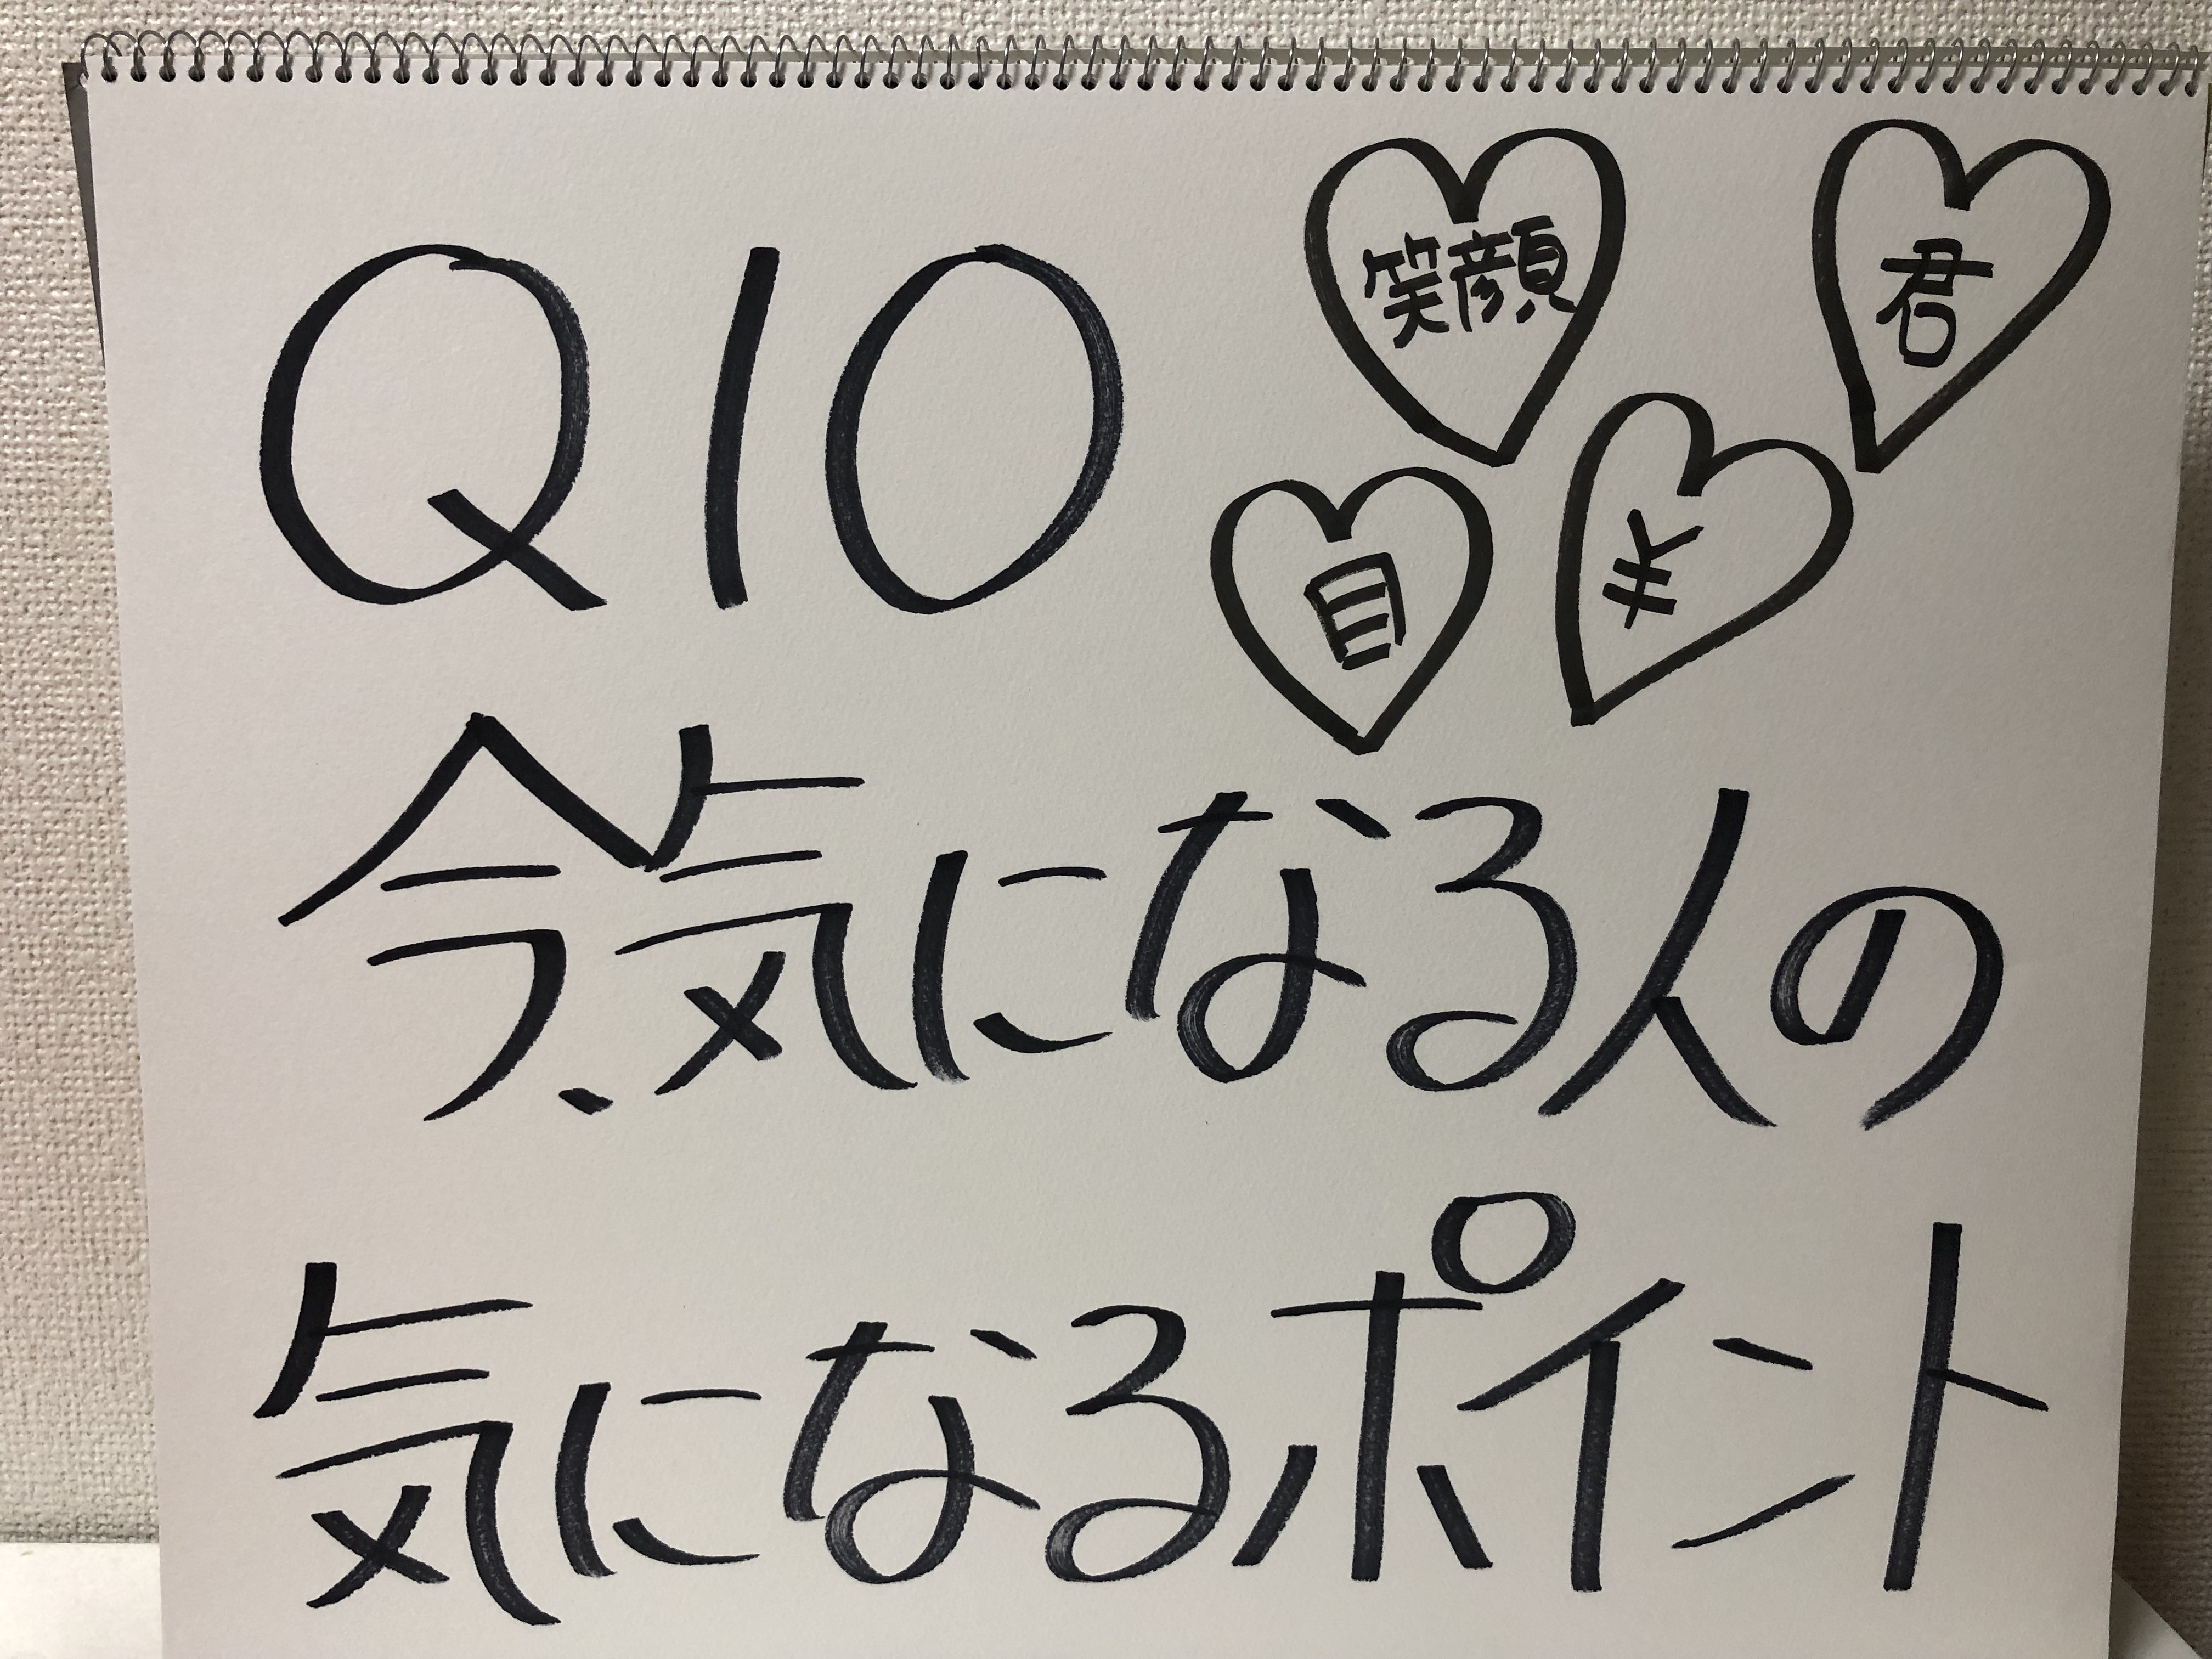 Q10
笑顔
君
目
¥
今、気になる人の
気になるポイント